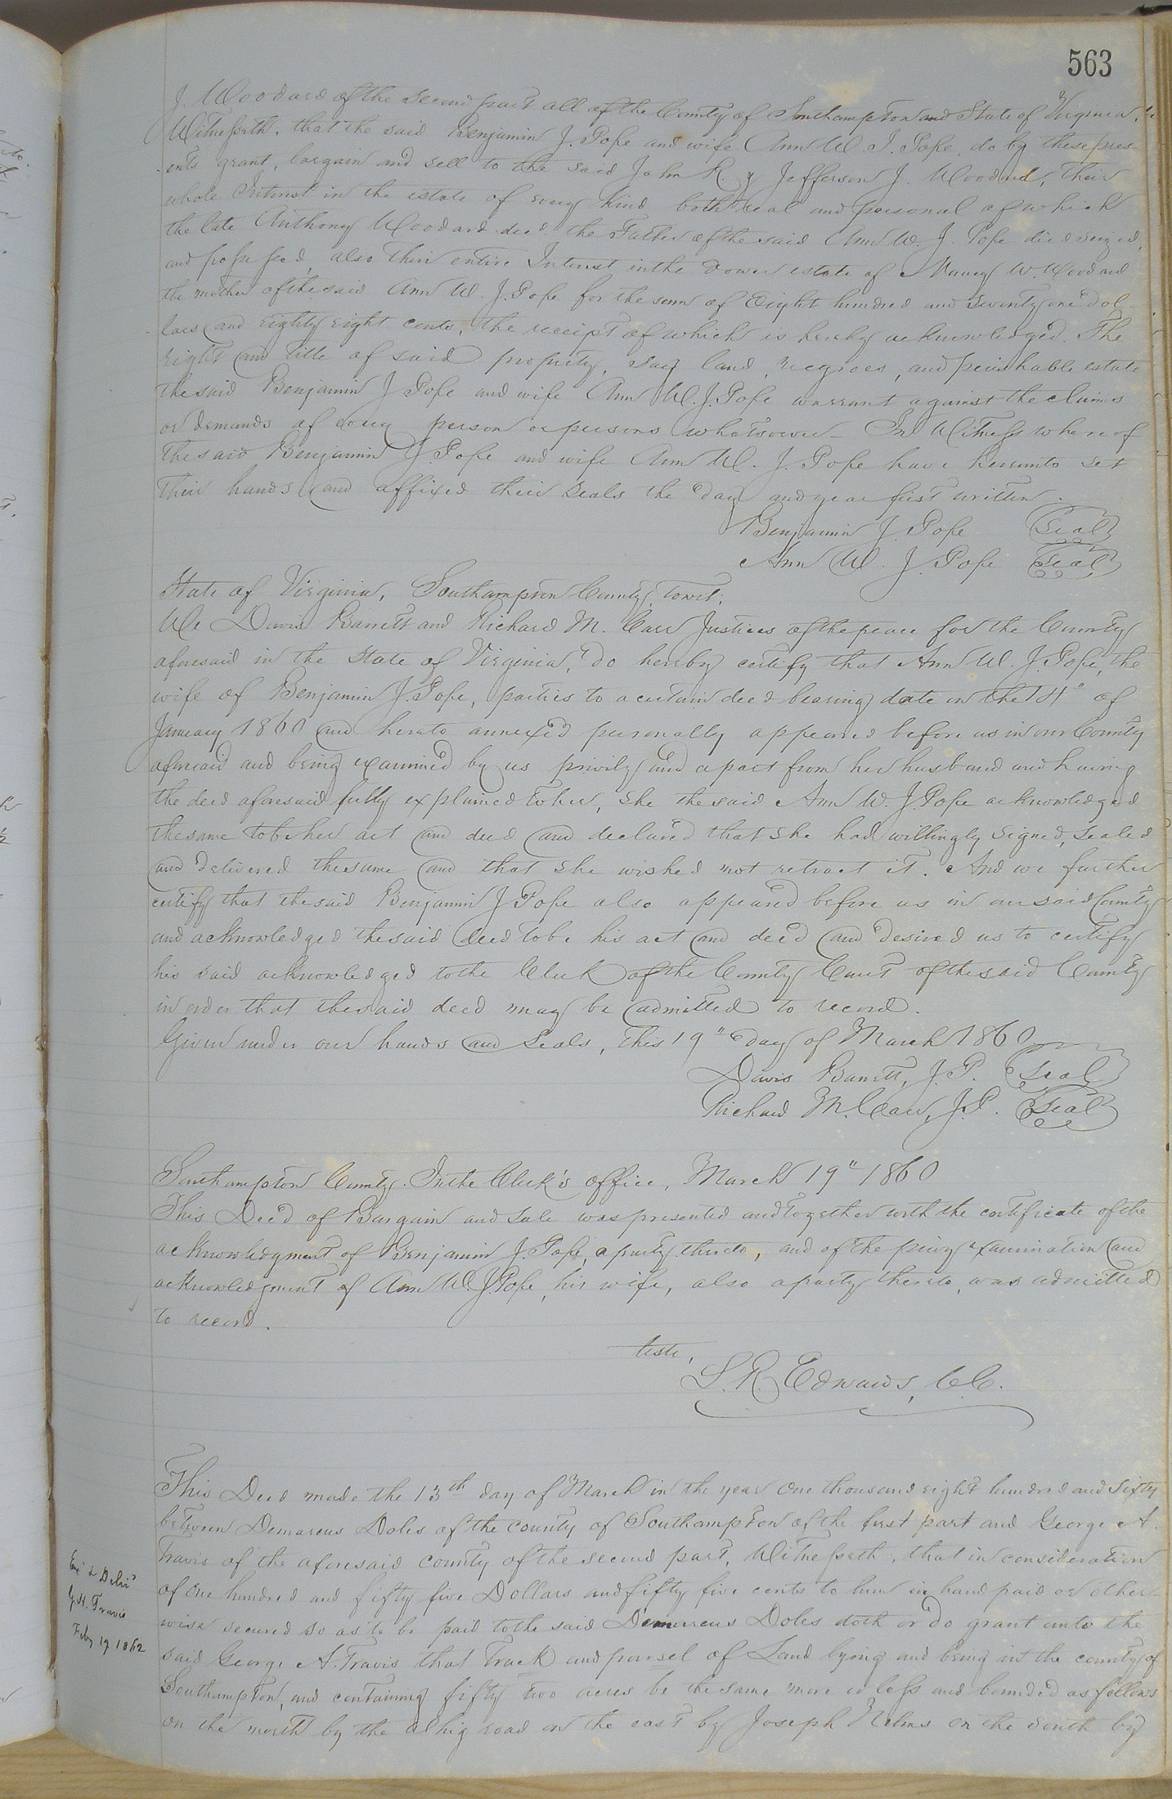 563
J. Woodard of the second part all of the County of Southampton and State of Virginia,
Witnesseth, that the said Benjamin J. Pope and wife Ann W. J. Pope, do by these pres-
ents grant, bargain and sell to the said John R. & Jefferson J. Woodard, their
whole Interest in the estate of every kind both real and personal of which
the late Anthony Woodard decd. the Father of the said Ann W. J. Pope died seized,
and possessed, also their entire Interest in the dower estate of Nancy W. Woodard
the mother of the said Ann W. J. Pope for the sum of Eight hundred and seventy one dol-
lars and eighty eight cents, the receipt of which is hereby acknowledged. The
right and title of said property, say land, negroes, and perishable estate
the said Benjamin J Pope and wife Ann W. J. Pope warrant against the claims
or demands of every person or persons whatsoever – In Witness whereof
the said Benjamin J. Pope and wife Ann W. J. Pope have hereunto set
their hands and affixed their seals the day and year first written.
Benjamin J. Pope Seal
Ann W. J. Pope Seal
State of Virginia, Southampton County, towit,
We Davis Barrett and Richard M. Carr Justices of the peace for the County
aforesaid in the State of Virginia, do hereby certify that Ann W. J. Pope, the
wife of Benjamin J. Pope, parties to a certain deed bearing date on the of
January 1860 and hereto annexed personally appeared before us in our County
aforesaid and being examined by us privily and apart from her husband and having
the deed aforesaid fully explained to her, she the said Ann W. J Pope acknowledged
the same to be her act and deed and declared that she had willingly signed, sealed
and delivered the same and that she wished not retract it. And we further
certify that the said Benjamin J Pope also appeared before us in our said County
and acknowledged the said deed to be his act and deed and desired us to certify
his said acknowledged to the Clerk of the County Court of the said County
in order that the said deed may be admitted to record.
Given under our hands and seals, this 19" day of March 1860
Davis Barrett, J. P. Seal
Richard M. Carr, J. P. Seal
Southampton County. In the Clerk's office, March 19" 1860
This Deed of Bargain and sale was presented and together with the certificate of the
acknowledgment of Benjamin J. Pope, a party thereto, and of the privy examination and
acknowledgment of Ann W. J. Pope, his wife, also a party thereto, was admitted
to record.
Teste,
L. R. Edwards, C. C.
This Deed made the 13th day of March in the year one thousand eight hundred and sixty
between Demarcus Doles of the county of Southampton of the first part and George A.
Travis of the aforesaid county of the second part, Witnesseth, that in consideration
of one hundred and fifty five Dollars and fifty five cents to him in hand paid or other-
wise secured so as to be paid to the said Demarcus Doles doth or do grant unto the
said George A. Travis that Track and parsel of Land lying and being in the county of
Southampton, and containing fifty two acres be the same more or less and bounded as follows
on the north by the road on the east by Joseph Nelms on the south by
Ex'd & Deliv'd
G. A. Travis
Feby 19 1862